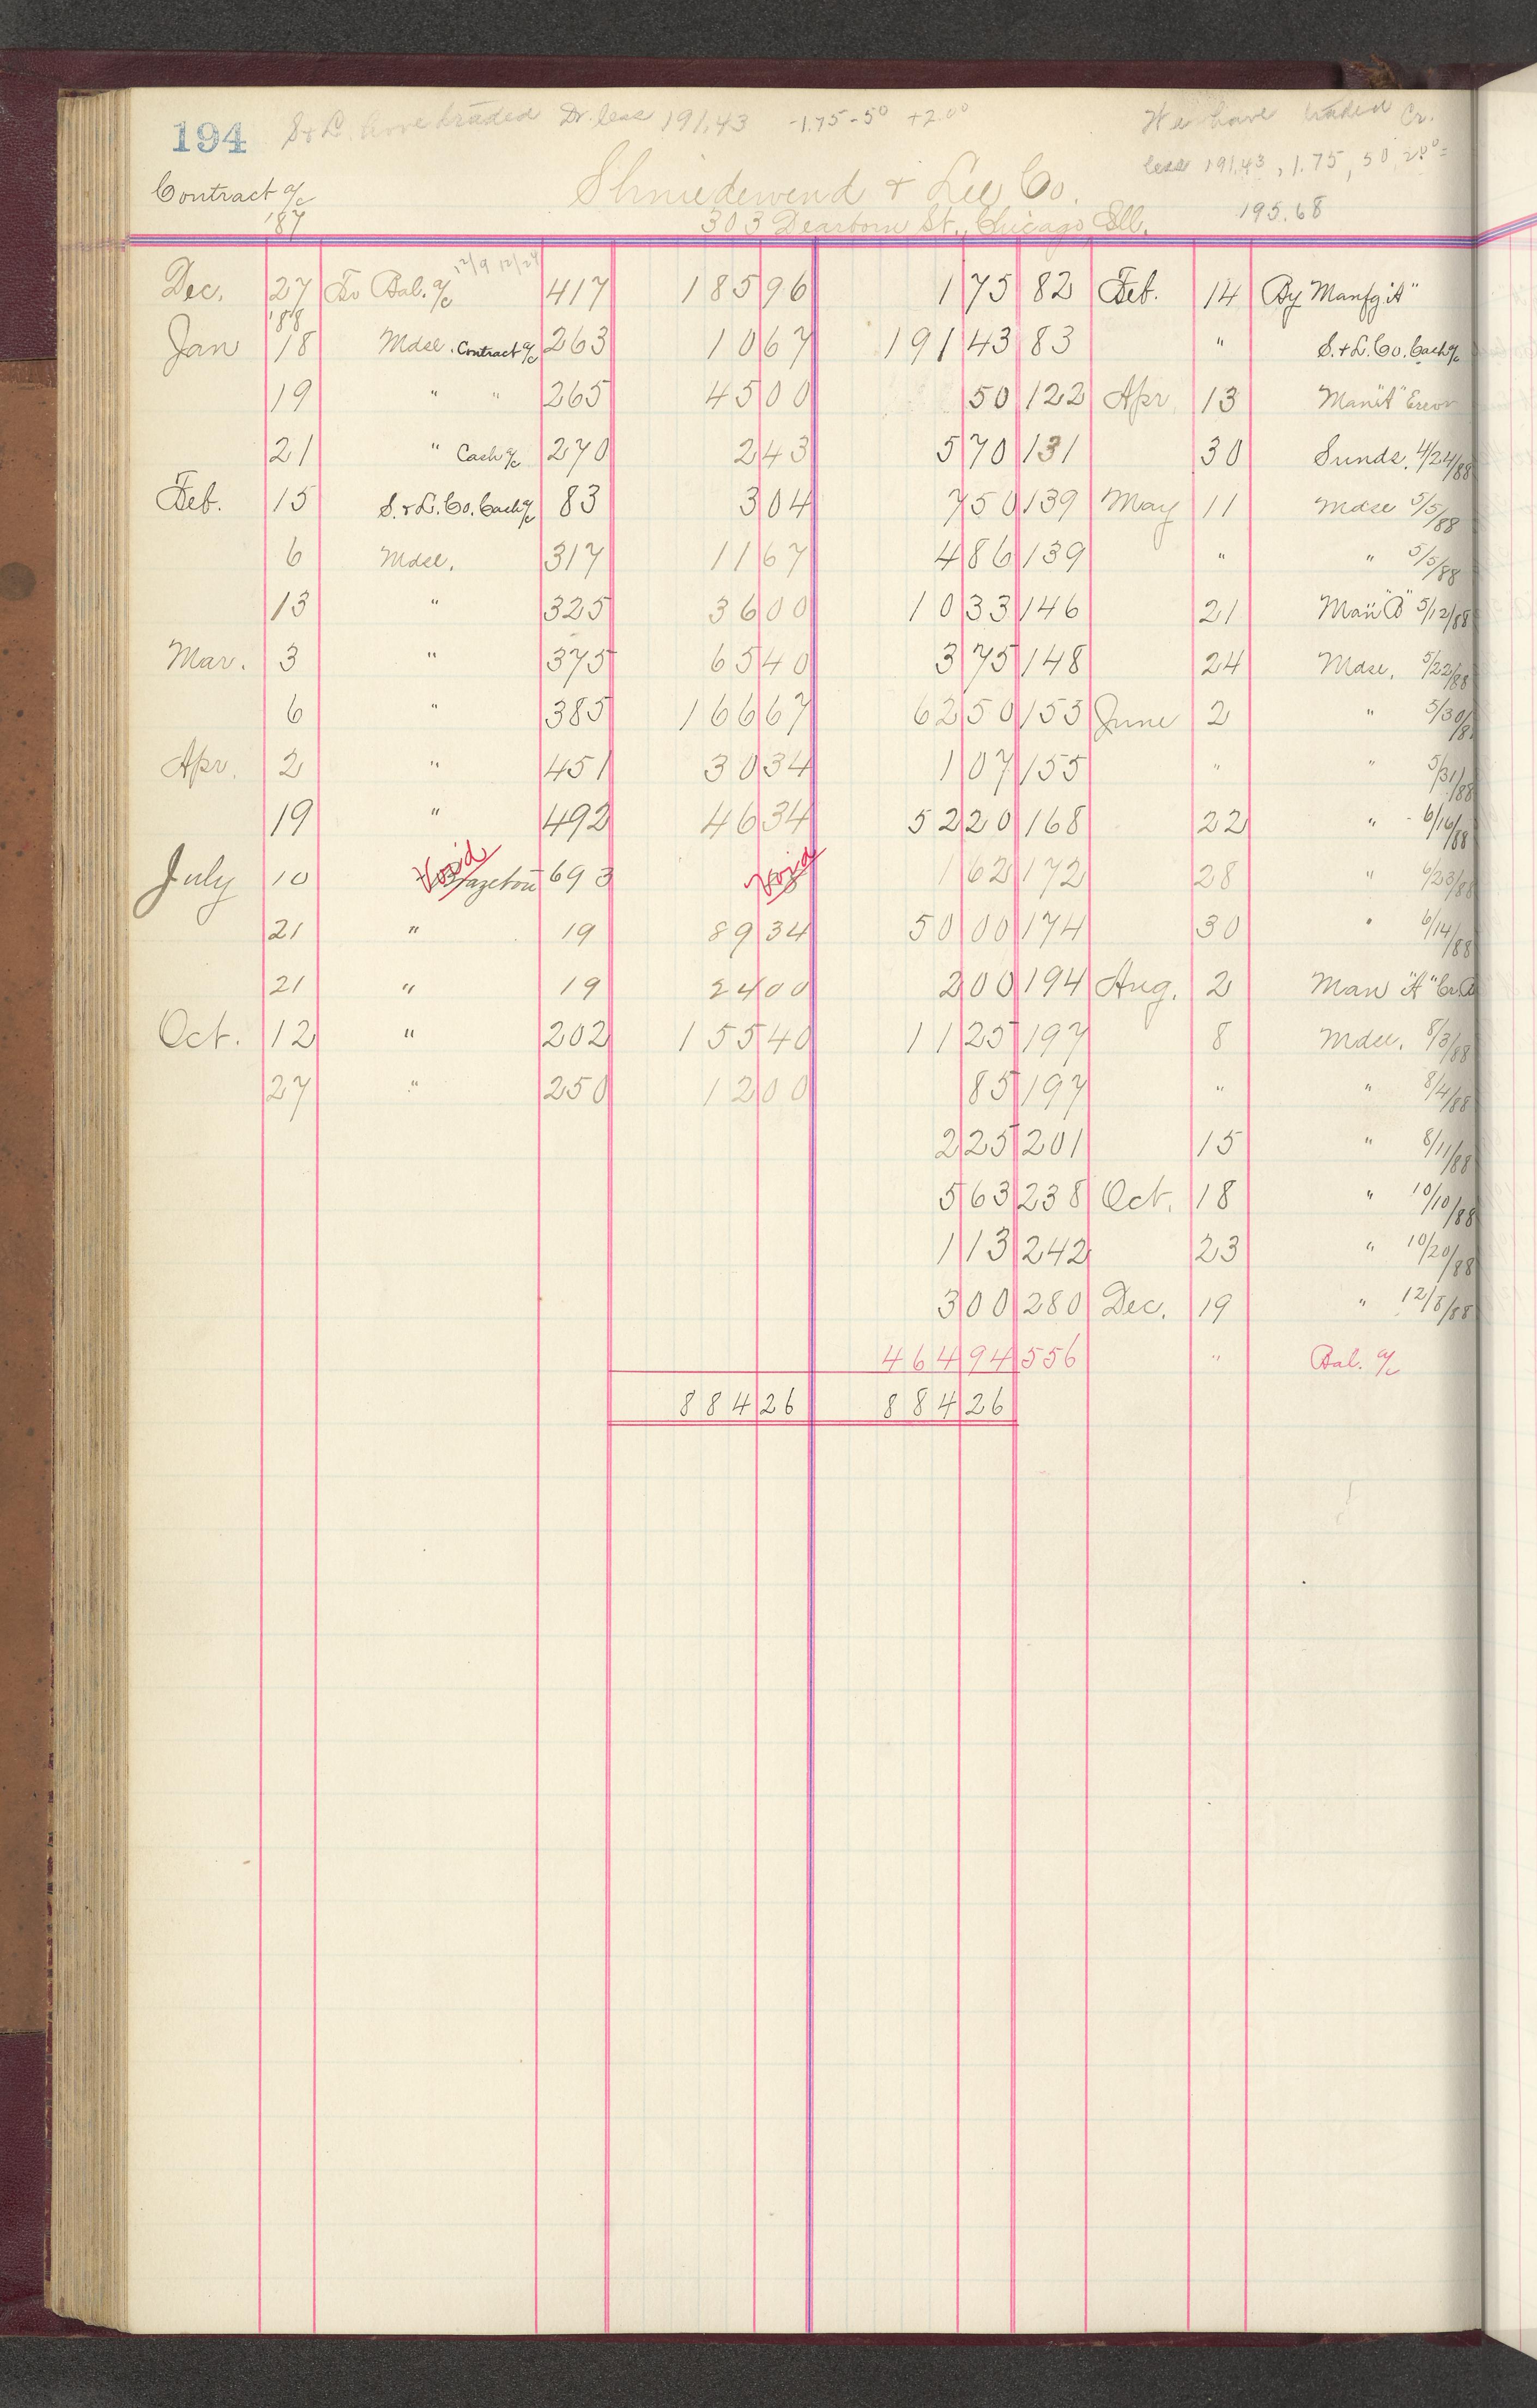 194 S & L. have traded Dr. less 191.43 -1.75 -50 +2.00 We have traded Cr.
less 191.43, 1.75, 50, 2.00 =
Contract a/c Shniedewend & Lee Co. 195.68
'87 303 Dearborn St., Chicago Ill.
Dec. 27 To Bal. a/c 12/9 12/24 417 185 96 1 75 82 Feb. 14 By Manfg "A"
'88
Jan 18 Mdse. Contract a/c 263 10 67 191 43 83 " S. & L. Co. Cash a/c
19 " " 265 45 00 50 122 Apr 13 Man "A" Error
21 " Cash a/c 270 2 43 5 70 131 30 Sunds. 4/24/88
Feb. 15 S. & L. Co. Cash a/c 83 3 04 7 50 139 May 11 Mdse 5/5/88
6 Mdse. 317 11 67 4 86 139 " " 5/5/88
13 " 325 36 00 10 33 146 21 Man "B" 5/12/88
Mar. 3 " 375 65 40 3 75 148 24 Mdse. 5/22/88
6 " 385 166 67 62 50 153 June 2 " 5/30/8
Apr. 2 " 451 30 34 1 07 155 " " 5/31/88
19 " 492 46 34 52 20 168 22 " 6/16/88
July 10 Void 693 Void 1 62 172 28 " 6/23/88
21 " 19 89 34 50 00 174 30 " 6/14/88
21 " 19 24 00 2 00 194 Aug. 2 Man "A" Cr.
Oct. 12 " 202 155 40 11 25 197 8 Mdse. 8/3/88
27 " 250 12 00 85 197 " " 8/4/88
2 25 201 15 " 8/11/88
5 63 238 Oct. 18 " 10/10/88
1 13 242 23 " 10/20/88
3 00 280 Dec. 19 " 12/8/88
464 94 556 " Bal. a/c
884 26 884 26